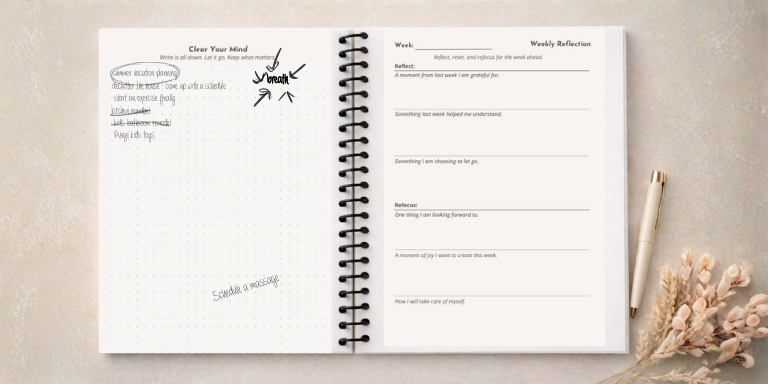 Clear Your Mind
Write is all down. Let it go. Keep what matters.
Summer vacation planning
declutter the house - come up with a schedule
start an exercise finally
kitchen remodel
kids bathroom remodel
Purge kids toys
breath
Schedule a massage
Week:
Weekly Reflection
Reflect, reset, and refocus for the week ahead.
Reflect:
A moment from last week I am grateful for.
Something last week helped me understand.
Something I am choosing to let go.
Refocus:
One thing I am looking forward to.
A moment of joy I want to create this week.
How I will take care of myself.